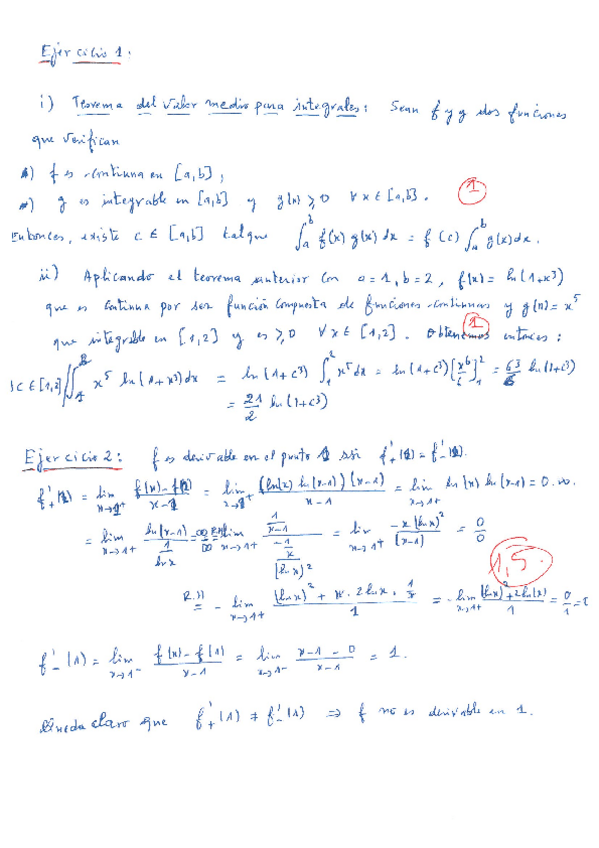 Ejercicio 1:
i) Teorema del valor medio para integrales: Sean f y g dos funciones
que verifican
*) f es continua en [a,b];
*) g es integrable en [a,b] y g(x) ≥ 0 ∀ x ∈ [a,b]. 1
Entonces, existe c ∈ [a,b] tal que ∫_a^b f(x) g(x) dx = f(c) ∫_a^b g(x) dx.
ii) Aplicando el teorema anterior con a=1, b=2, f(x) = ln(1+x³)
que es continua por ser función compuesta de funciones continuas y g(x) = x⁵
que integrable en [1,2] y es ≥ 0 ∀ x ∈ [1,2]. 1 Obtenemos entonces:
∃ c ∈ [1,2] / ∫_1^2 x⁵ ln(1+x³) dx = ln(1+c³) ∫_1^2 x⁵ dx = ln(1+c³) [x⁶/6]_1^2 = 63/6 ln(1+c³)
= 21/2 ln(1+c³)
Ejercicio 2: f es derivable en el punto 1 ssi f'₊(1) = f'₋(1).
f'₊(1) = lim_{x→1⁺} (f(x) - f(1))/(x-1) = lim_{x→1⁺} ((ln(x) ln(x-1))(x-1))/(x-1) = lim_{x→1⁺} ln(x) ln(x-1) = 0·∞.
= lim_{x→1⁺} ln(x-1)/(1/ln x) = ∞/∞ = lim_{x→1⁺} (1/(x-1))/((-1/x)/(ln x)²) = lim_{x→1⁺} (-x(ln x)²)/(x-1) = 0/0
1,5
= - lim_{x→1⁺} ((ln x)² + x · 2 ln x · 1/x)/1 = - lim_{x→1⁺} ((ln x)² + 2 ln(x))/1 = 0/1 = 0
f'₋(1) = lim_{x→1⁻} (f(x) - f(1))/(x-1) = lim_{x→1⁻} (x-1-0)/(x-1) = 1.
Queda claro que f'₊(1) ≠ f'₋(1) ⇒ f no es derivable en 1.